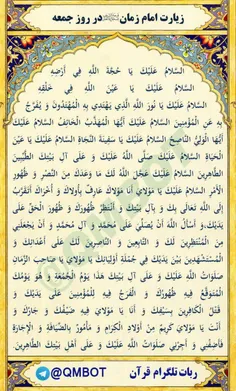 زیارت امام زمان در روز جمعه
السَّلامُ عَلَيْكَ يَا حُجَّةَ اللَّهِ فِي أَرْضِهِ
السَّلامُ عَلَيْكَ يَا عَيْنَ اللَّهِ فِي خَلْقِهِ
السَّلامُ عَلَيْكَ يَا نُورَ اللَّهِ الَّذِي يَهْتَدِي بِهِ الْمُهْتَدُونَ وَ يُفَرَّجُ
بِهِ عَنِ الْمُؤْمِنِينَ السَّلامُ عَلَيْكَ أَيُّهَا الْمُهَذَّبُ الْخَائِفُ السَّلامُ عَلَيْكَ
أَيُّهَا الْوَلِيُّ النَّاصِحُ السَّلامُ عَلَيْكَ يَا سَفِينَةَ النَّجَاةِ السَّلامُ عَلَيْكَ يَا عَيْنَ
الْحَيَاةِ السَّلامُ عَلَيْكَ صَلَّى اللَّهُ عَلَيْكَ وَ عَلَى آلِ بَيْتِكَ الطَّيِّبِينَ
الطَّاهِرِينَ السَّلامُ عَلَيْكَ عَجَّلَ اللَّهُ لَكَ مَا وَعَدَكَ مِنَ النَّصْرِ وَ ظُهُورِ
الْأَمْرِ السَّلامُ عَلَيْكَ يَا مَوْلايَ أَنَا مَوْلاكَ عَارِفٌ بِأُولاكَ وَ أُخْرَاكَ أَتَقَرَّبُ
إِلَى اللَّهِ تَعَالَى بِكَ وَ بِآلِ بَيْتِكَ وَ أَنْتَظِرُ ظُهُورَكَ وَ ظُهُورَ الْحَقِّ عَلَى
يَدَيْكَ وَ أَسْأَلُ اللَّهَ أَنْ يُصَلِّيَ عَلَى مُحَمَّدٍ وَ آلِ مُحَمَّدٍ وَ أَنْ يَجْعَلَنِي
مِنَ الْمُنْتَظِرِينَ لَكَ وَ التَّابِعِينَ وَ النَّاصِرِينَ لَكَ عَلَى أَعْدَائِكَ وَ
الْمُسْتَشْهَدِينَ بَيْنَ يَدَيْكَ فِي جُمْلَةِ أَوْلِيَائِكَ يَا مَوْلايَ يَا صَاحِبَ الزَّمَانِ
صَلَوَاتُ اللَّهِ عَلَيْكَ وَ عَلَى آلِ بَيْتِكَ هَذَا يَوْمُ الْجُمُعَةِ وَ هُوَ يَوْمُكَ
الْمُتَوَقَّعُ فِيهِ ظُهُورُكَ وَ الْفَرَجُ فِيهِ لِلْمُؤْمِنِينَ عَلَى يَدَيْكَ وَ
قَتْلُ الْكَافِرِينَ بِسَيْفِكَ وَ أَنَا يَا مَوْلايَ فِيهِ ضَيْفُكَ وَ جَارُكَ وَ
أَنْتَ يَا مَوْلايَ كَرِيمٌ مِنْ أَوْلادِ الْكِرَامِ وَ مَأْمُورٌ بِالضِّيَافَةِ وَ الْإِجَارَةِ
فَأَضِفْنِي وَ أَجِرْنِي صَلَوَاتُ اللَّهِ عَلَيْكَ وَ عَلَى أَهْلِ بَيْتِكَ الطَّاهِرِينَ
ربات تلگرام قرآن @QMBOT